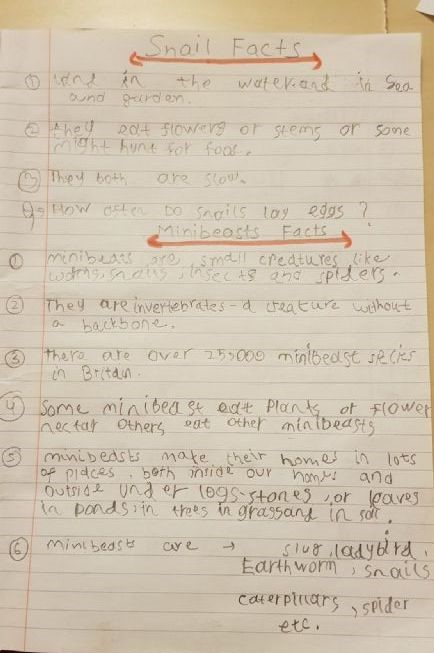 Snail Facts
① land in the water and in sea
and garden.
② they eat flowers or stems or some
might hunt for food.
③ They both are slow.
Qs How often Do snails lay eggs ?
Minibeasts Facts
① minibeasts are small creatures like
worms, snails, insects and spiders.
② They are invertebrates - a creature without
a backbone.
③ there are over 255000 minibeast
in Britain.
④ Some minibeast eat Plants or Flower
nectar others eat other minibeasts
⑤ minibeasts make their homes in lots
of places. both inside our homes and
outside under logs-stones, or leaves
in ponds, in trees in grass and in soil.
⑥ minibeast are → slug, ladybird,
Earthworm, snails
caterpillars, spider
etc.